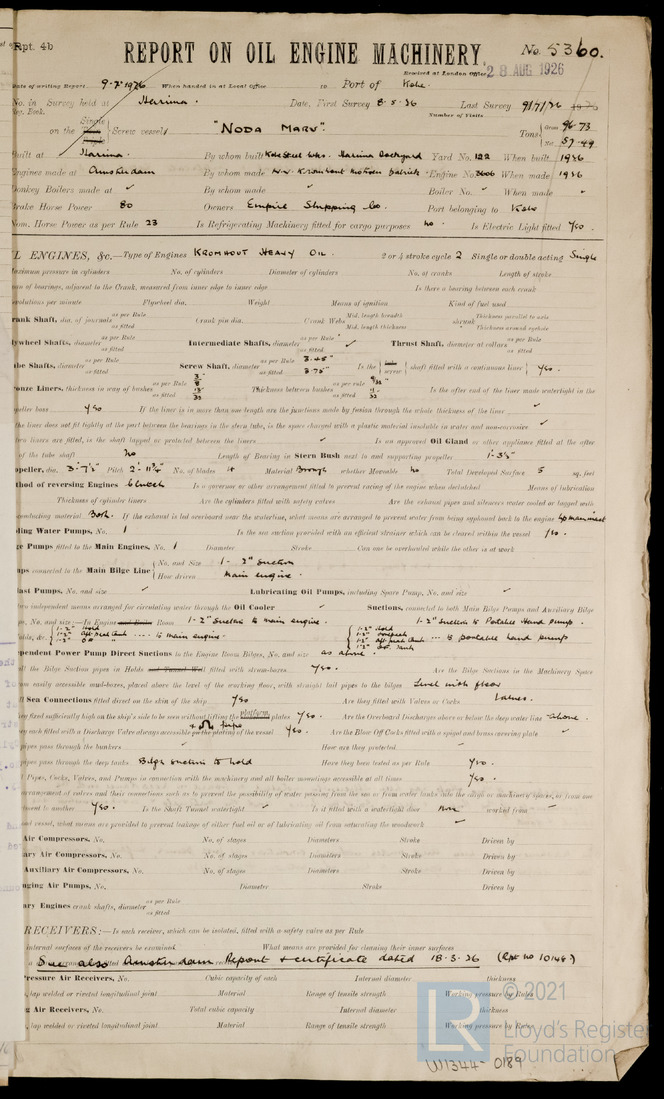 Rpt. 4b
REPORT ON OIL ENGINE MACHINERY.
No. 5360.
Received at London Office 28 AUG 1926
Date of writing Report 9-7-1926 When handed in at Local Office Port of Kobe
No. in Survey held at Harima. Date, First Survey 8.5.26 Last Survey 9/7/26
Reg. Book. Number of Visits
on the Single Screw vessel "NODA MARU". Tons Gross 96.73 Net 57.49
Built at Harima. By whom built Kobe Steel Wks. Harima Dockyard Yard No. 122 When built 1926
Engines made at Amsterdam By whom made Engine No. 3606 When made 1926
Donkey Boilers made at ✓ By whom made ✓ Boiler No. ✓ When made ✓
Brake Horse Power 80 Owners Empire Shipping Co. Port belonging to Kobe
Nom. Horse Power as per Rule 23 Is Refrigerating Machinery fitted for cargo purposes no. Is Electric Light fitted Yes.
OIL ENGINES, &c.—Type of Engines KROMHOUT HEAVY OIL. 2 or 4 stroke cycle 2 Single or double acting Single
Maximum pressure in cylinders No. of cylinders Diameter of cylinders No. of cranks Length of stroke
of bearings, adjacent to the Crank, measured from inner edge to inner edge Is there a bearing between each crank
Revolutions per minute Flywheel dia. Weight Means of ignition Kind of fuel used
Crank Shaft, dia. of journals as per Rule as fitted Crank pin dia. Crank Webs Mid. length breadth Mid. length thickness shrunk Thickness parallel to axis Thickness around eyehole
Flywheel Shafts, diameter as per Rule as fitted Intermediate Shafts, diameter as per Rule as fitted ✓ Thrust Shaft, diameter at collars as per Rule as fitted
Tube Shafts, diameter as per Rule as fitted Screw Shaft, diameter as per Rule 3.45" as fitted 3.75" Is the screw shaft fitted with a continuous liner Yes.
Bronze Liners, thickness in way of bushes as per Rule as fitted Thickness between bushes as per rule as fitted Is the after end of the liner made watertight in the
propeller boss Yes If the liner is in more than one length are the junctions made by fusion through the whole thickness of the liner ✓
If the liner does not fit tightly at the part between the bearings in the stern tube, is the space charged with a plastic material insoluble in water and non-corrosive ✓
If two liners are fitted, is the shaft lapped or protected between the liners ✓ Is an approved Oil Gland or other appliance fitted at the after
end of the tube shaft No Length of Bearing in Stern Bush next to and supporting propeller 1'-3½"
Propeller, dia. 3'-7½" Pitch 2'-11¾" No. of blades Material Bronze whether Moveable no Total Developed Surface 5 sq. feet
Method of reversing Engines Clutch Is a governor or other arrangement fitted to prevent racing of the engine when declutched Means of lubrication
Thickness of cylinder liners Are the cylinders fitted with safety valves Are the exhaust pipes and silencers water cooled or lagged with
non-conducting material Both. If the exhaust is led overboard near the waterline, what means are arranged to prevent water from being syphoned back to the engine
Cooling Water Pumps, No. 1 Is the sea suction provided with an efficient strainer which can be cleared within the vessel Yes.
Bilge Pumps fitted to the Main Engines, No. 1 Diameter Stroke Can one be overhauled while the other is at work
Pumps connected to the Main Bilge Line No. and Size 1 - 2" Suction How driven Main engine.
Ballast Pumps, No. and size ✓ Lubricating Oil Pumps, including Spare Pump, No. and size ✓
Are two independent means arranged for circulating water through the Oil Cooler ✓ Suctions, connected to both Main Bilge Pumps and Auxiliary Bilge
Pumps, No. and size:— In Engine Room 1-2" Suction to main engine. 1-2" Suction to Potable Hand pump.
Holds, &c. 1-2" Hold 1-2" Aft-peak tank .... to main engine. 1-2" Hold 1-2" forepeak 1-2" aft-peak tank 1-2" O.F. Tank ... to portable hand pump
Independent Power Pump Direct Suctions to the Engine Room Bilges, No. and size as above.
Are all the Bilge Suction pipes in Holds fitted with strum-boxes Yes. Are the Bilge Suctions in the Machinery Space
led from easily accessible mud-boxes, placed above the level of the working floor, with straight tail pipes to the bilges Level with floor
Are all Sea Connections fitted direct on the skin of the ship Yes Are they fitted with Valves or Cocks Valves.
Are they fixed sufficiently high on the ship's side to be seen without lifting the platform plates Yes. Are the Overboard Discharges above or below the deep water line above.
Are they each fitted with a Discharge Valve always accessible on the plating of the vessel Yes. Are the Blow Off Cocks fitted with a spigot and brass covering plate ✓
What pipes pass through the bunkers ✓ How are they protected ✓
What pipes pass through the deep tanks Bilge suction to hold Have they been tested as per Rule Yes.
Are all Pipes, Cocks, Valves, and Pumps in connection with the machinery and all boiler mountings accessible at all times Yes.
Is the arrangement of valves and their connections such as to prevent the possibility of water passing from the sea or from water tanks into the cargo or machinery spaces, or from one
compartment to another Yes. Is the Shaft Tunnel watertight ✓ Is it fitted with a watertight door None worked from ✓
If a wood vessel, what means are provided to prevent leakage of either fuel oil or of lubricating oil from saturating the woodwork ✓
Air Compressors, No. No. of stages Diameters Stroke Driven by
Auxiliary Air Compressors, No. No. of stages Diameters Stroke Driven by
Auxiliary Air Compressors, No. No. of stages Diameters Stroke Driven by
Scavenging Air Pumps, No. Diameter Stroke Driven by
Auxiliary Engines crank shafts, diameter as per Rule as fitted
RECEIVERS:—Is each receiver, which can be isolated, fitted with a safety valve as per Rule
internal surfaces of the receivers be examined What means are provided for cleaning their inner surfaces
See also Amsterdam Report & certificate dated 18.3.26 (Rpt no 10148)
Pressure Air Receivers, No. Cubic capacity of each Internal diameter thickness
lap welded or riveted longitudinal joint Material Range of tensile strength Working pressure by Rules
Air Receivers, No. Total cubic capacity Internal diameter thickness
lap welded or riveted longitudinal joint Material Range of tensile strength Working pressure by Rules
LR
© 2021
Lloyd's Register
Foundation
W1344-0189